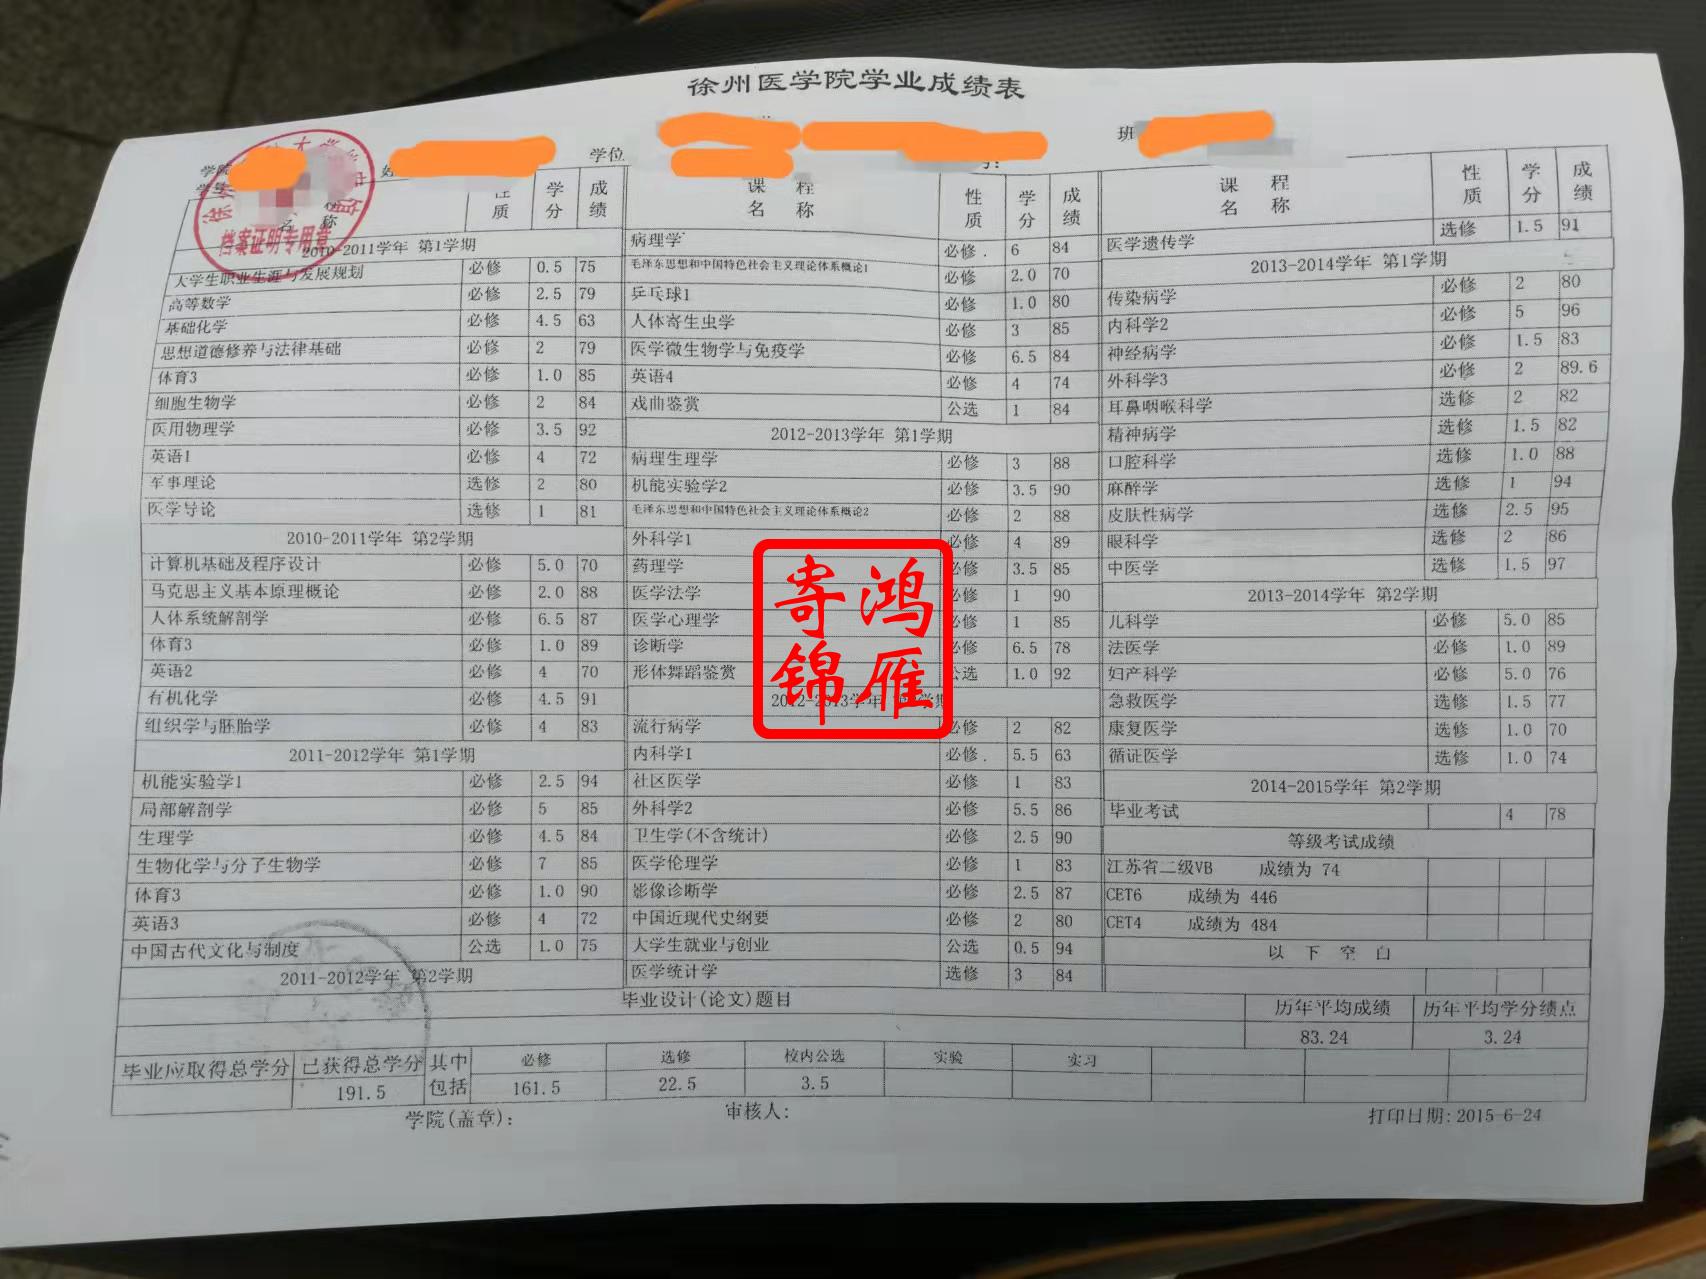 徐州医学院学业成绩表
学院
学位
班
学号
档案证明专用章
名 称 性质 学分 成绩
2010-2011学年 第1学期
大学生职业生涯与发展规划 必修 0.5 75
高等数学 必修 2.5 79
基础化学 必修 4.5 63
思想道德修养与法律基础 必修 2 79
体育3 必修 1.0 85
细胞生物学 必修 2 84
医用物理学 必修 3.5 92
英语1 必修 4 72
军事理论 选修 2 80
医学导论 选修 1 81
2010-2011学年 第2学期
计算机基础及程序设计 必修 5.0 70
马克思主义基本原理概论 必修 2.0 88
人体系统解剖学 必修 6.5 87
体育3 必修 1.0 89
英语2 必修 4 70
有机化学 必修 4.5 91
组织学与胚胎学 必修 4 83
2011-2012学年 第1学期
机能实验学1 必修 2.5 94
局部解剖学 必修 5 85
生理学 必修 4.5 84
生物化学与分子生物学 必修 7 85
体育3 必修 1.0 90
英语3 必修 4 72
中国古代文化与制度 公选 1.0 75
2011-2012学年 第2学期
课程名称 性质 学分 成绩
病理学 必修 6 84
毛泽东思想和中国特色社会主义理论体系概论1 必修 2.0 70
乒乓球1 必修 1.0 80
人体寄生虫学 必修 3 85
医学微生物学与免疫学 必修 6.5 84
英语4 必修 4 74
戏曲鉴赏 公选 1 84
2012-2013学年 第1学期
病理生理学 必修 3 88
机能实验学2 必修 3.5 90
毛泽东思想和中国特色社会主义理论体系概论2 必修 2 88
外科学1 必修 4 89
药理学 必修 3.5 85
医学法学 必修 1 90
医学心理学 必修 1 85
诊断学 必修 6.5 78
形体舞蹈鉴赏 公选 1.0 92
2012-2013学年 学期
流行病学 必修 2 82
内科学1 必修 5.5 63
社区医学 必修 1 83
外科学2 必修 5.5 86
卫生学(不含统计) 必修 2.5 90
医学伦理学 必修 1 83
影像诊断学 必修 2.5 87
中国近现代史纲要 必修 2 80
大学生就业与创业 公选 0.5 94
医学统计学 选修 3 84
课程名称 性质 学分 成绩
医学遗传学 选修 1.5 91
2013-2014学年 第1学期
传染病学 必修 2 80
内科学2 必修 5 96
神经病学 必修 1.5 83
外科学3 必修 2 89.6
耳鼻咽喉科学 选修 2 82
精神病学 选修 1.5 82
口腔科学 选修 1.0 88
麻醉学 选修 1 94
皮肤性病学 选修 2.5 95
眼科学 选修 2 86
中医学 选修 1.5 97
2013-2014学年 第2学期
儿科学 必修 5.0 85
法医学 必修 1.0 89
妇产科学 必修 5.0 76
急救医学 选修 1.5 77
康复医学 选修 1.0 70
循证医学 选修 1.0 74
2014-2015学年 第2学期
毕业考试 4 78
等级考试成绩
江苏省二级VB 成绩为 74
CET6 成绩为 446
CET4 成绩为 484
以 下 空 白
寄鸿
锦雁
毕业设计(论文)题目 历年平均成绩 历年平均学分绩点
83.24 3.24
毕业应取得总学分 已获得总学分 其中包括 必修 选修 校内公选 实验 实习
191.5 161.5 22.5 3.5
学院(盖章): 审核人: 打印日期:2015-6-24